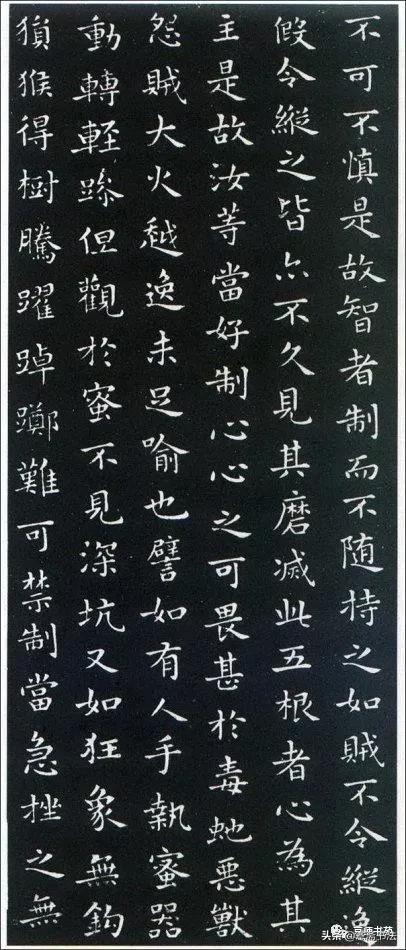 不可不慎是故智者制而不随持之如賊不令縱逸
假令縱之皆亦不久見其磨滅此五根者心為其
主是故汝等當好制心心之可畏甚於毒虵惡獸
怨賊大火越逸未足喻也譬如有人手執蜜器
動轉輕躁但觀於蜜不見深坑又如狂象無鈎
猨猴得樹騰躍踔躑難可禁制當急挫之無